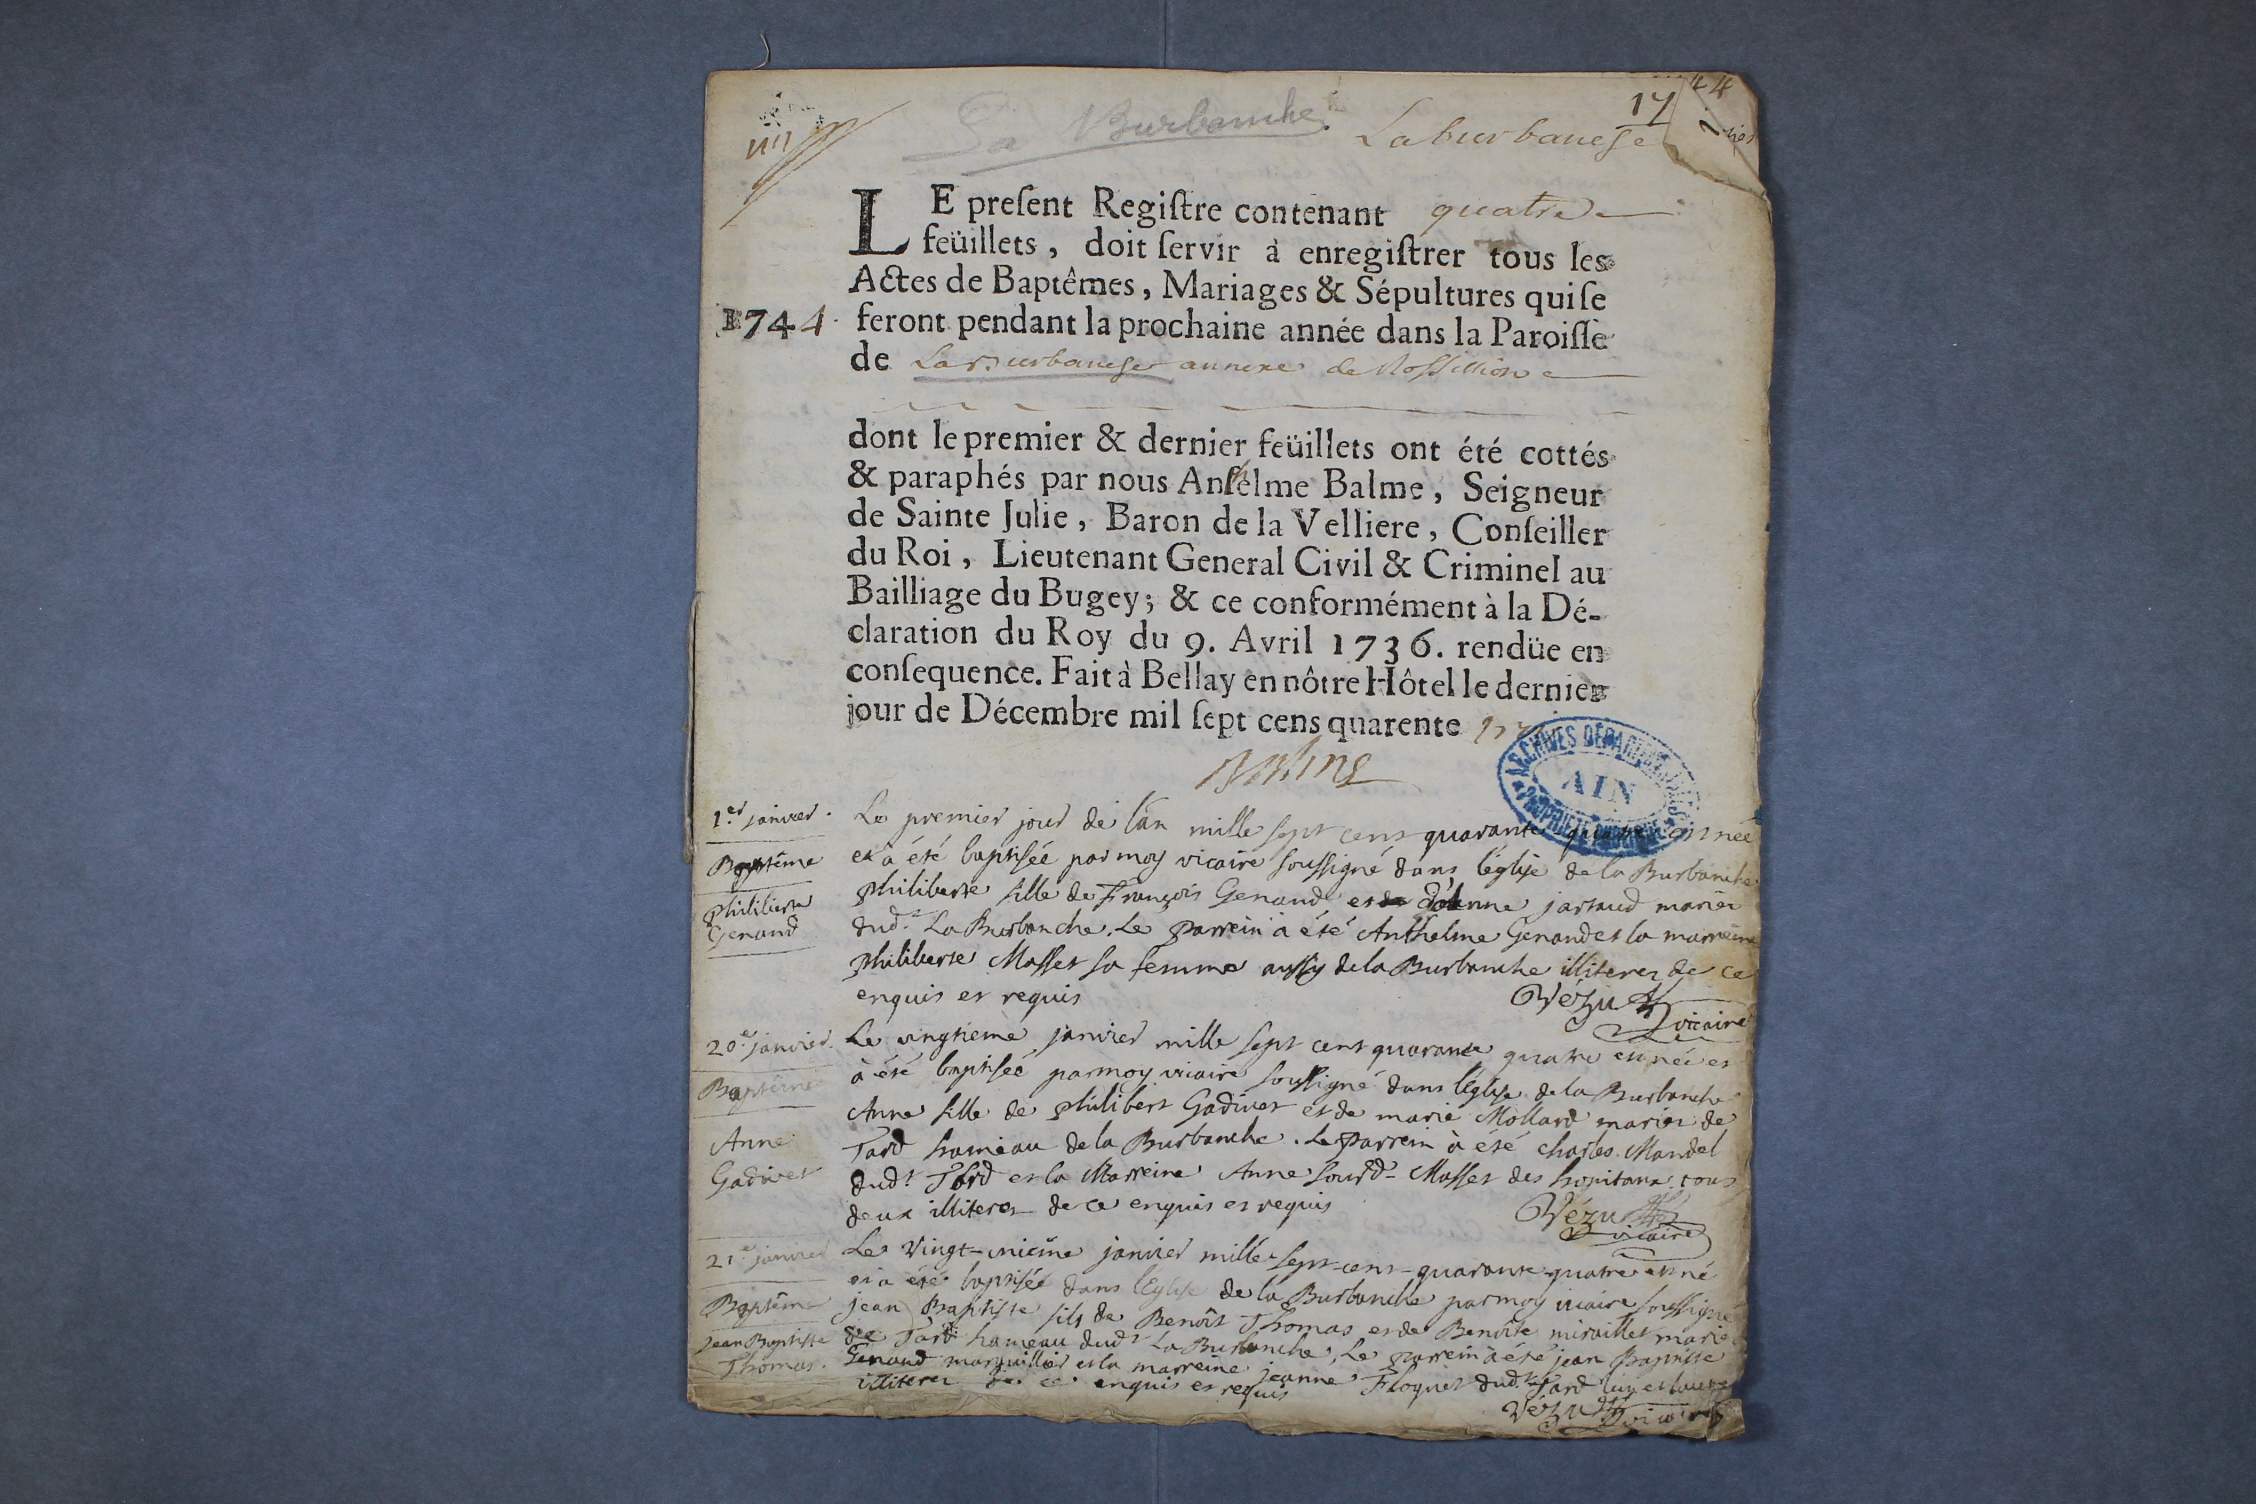 La Burbanche
Laburbanche
1744
LE preſent Regiſtre contenant quatre
feüillets, doit ſervir à enregiſtrer tous les
Actes de Baptêmes, Mariages & Sépultures qui ſe
1744 feront pendant la prochaine année dans la Paroiſſe
de La Burbanche annexe de Rossillion
dont le premier & dernier feüillets ont été cottés
& paraphés par nous Anthelme Balme, Seigneur
de Sainte Julie, Baron de la Velliere, Conſeiller
du Roi, Lieutenant General Civil & Criminel au
Bailliage du Bugey; & ce conformément à la Dé-
claration du Roy du 9. Avril 1736. rendüe en
conſequence. Fait à Bellay en nôtre Hôtel le dernier
jour de Décembre mil ſept cens quarente
Balme
ARCHIVES DÉPARTEMENTALES
AIN
PROPRIÉTÉ PUBLIQUE
1.er janvier.
Baptême
philiberte
Genand
Le premier jour de l'an mille sept cens quarante quatre est née
et à été baptisée par moy vicaire soussigné dans l'église de la Burbanche
philiberte fille de François Genand et d'Anne jartaud mariéz
dud.t La Burbanche. Le parrein à été Anthelme Genand et la marreine
philiberte Masset sa femme aussy de la Burbanche illiterez de ce
enquis et requis
Vézu vicaire
20.e janvier.
Baptême
Anne
Gadivet
Le vingtieme janvier mille sept cent quarante quatre est née et
à été baptisée par moy vicaire soussigné dans l'église de la Burbanche
Anne fille de philibert Gadivet et de marie Mollard mariéz de
Tard hameau de la Burbanche. Le parrein à été Charles Mandel
dud.t Tard et la Marreine Anne Masset des hopitaux tous
deux illiterez de ce enquis et requis
Vézu vicaire
21.e janvier
Baptême
jean Baptiste
Thomas.
Le Vingt-unième janvier mille-sept-cens-quarante-quatre est né
et a été baptisé dans l'Eglise de la Burbanche par moy vicaire soussigné
jean Baptiste fils de Benoît Thomas et de Benoîte miraillet mariéz
de Tard hameau dud.t La Burbanche, Le parrein à été jean Baptiste
Genaud marguillier et la marreine jeanne Floquet dud.t Tard
illiterez de ce enquis et requis
Vézu vicaire